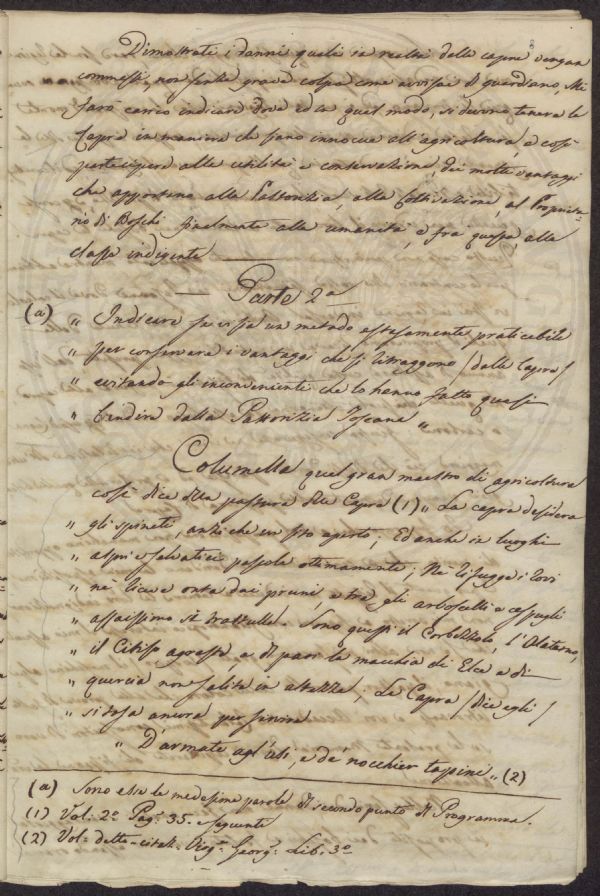 Dimostrati i danni quali in realtà dalle capre vengan
commessi, non senza grave colpa come avvisai di guardiano, Mi
farò carico indicare dove ed in qual modo, si devino tenere le
Capre in maniera che sano innocue all'agricoltura, e così
partecipare alle utilità e conservazione, dei molti vantaggi
che apportono alla Pastorizia, alla Coltivazione, al Proprieta-
rio di Boschi, finalmente alla umanità, e fra questa, alla
classe indigente
Parte 2a
(a) „ Indicare se vi sia un metodo estesamente praticabile
„ per conservare i vantaggi che si ritraggono (dalle Capre)
„ evitando gli inconvenienti che le hanno fatte quasi
„ bandire dalla Pastorizia Toscana „
Columella quel gran maestro di agricoltura
così dice della pastura delle Capre (1) „ La capra desidera
„ gli spineti, anzi che un sito aperto; Ed anche in luoghi
„ aspri e salvatici pascola ottimamente; Nè rifugge i rovi
„ nè riceve onta dai pruni, e tra gli arboscelli e cespugli
„ assaissimo si trastulla. Sono questi il Corbezzolo, l'Alaterno,
„ il Citiso agreste, e di pari la macchia di Elce e di
„ quercia non salita in altezza; La Capra (dice egli)
„ si tosa ancora per fornire
„ D'armate agl'usi, e de' nocchier tapini „ (2)
(a) Sono esse le medesime parole del secondo punto del Programma.
(1) Vol. 2o Pag. 35. e seguente
(2) Vol. detto - citat. Virg. Georg. Lib. 3o